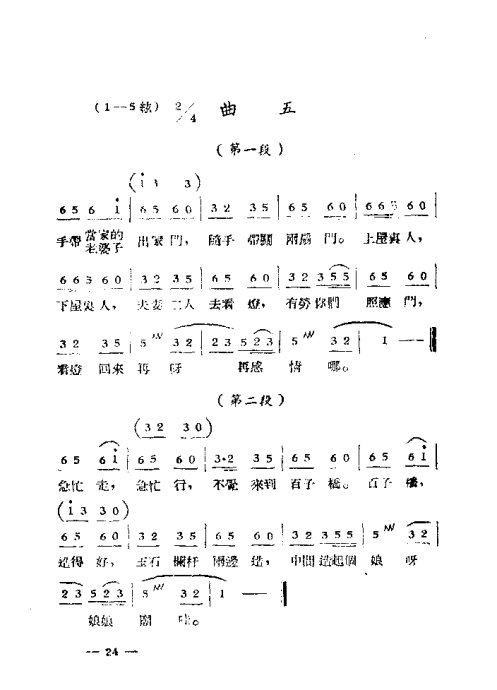 (1--5絃) 2/4 曲 五
(第一段)
(i 3 3)
6 5 6 i | 6 5 6 0 | 3 2 3 5 | 6 5 6 0 | 6 6 5 6 0 |
手帶 當家的 老婆子 出家門, 隨手 帶關 兩扇 門。 上屋裏人,
6 6 5 6 0 | 3 2 3 5 | 6 5 6 0 | 3 2 3 5 5 | 6 5 6 0 |
下屋裏人, 夫妻二人 去看 燈, 有勞你們 照應 門,
3 2 3 5 | 5 3 2 | 2 3 5 2 3 | 5 3 2 | 1 —— ‖
看燈 回來 再 呀 再感 情 哪。
(第二段)
(3 2 3 0)
6 5 6 i | 6 5 6 0 | 3·2 3 5 | 6 5 6 0 | 6 5 6 i |
急忙 走, 急忙 行, 不覺 來到 百子 橋。 百子 橋,
(i 3 3 0)
6 5 6 0 | 3 2 3 5 | 6 5 6 0 | 3 2 3 5 5 | 5 3 2 |
造得 好, 玉石 欄杆 兩邊 造, 中間 造起個 娘 呀
2 3 5 2 3 | 5 3 2 | 1 —— ‖
娘娘 廟 哇。
— 24 —